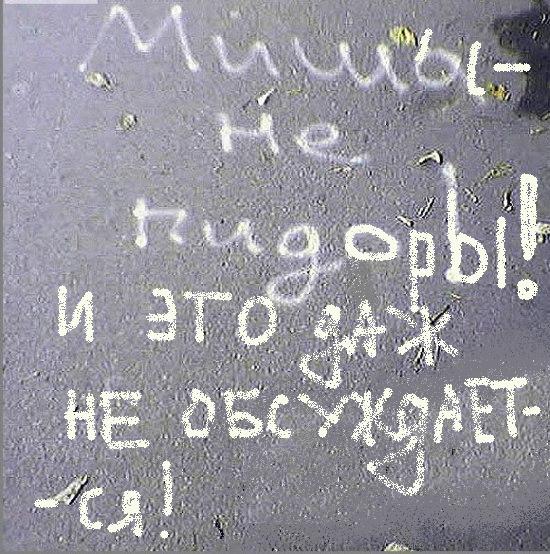 Мишы-
не
пидоры!
И ЭТО ДАЖ
НЕ ОБСУЖДАЕТ-
-СЯ!